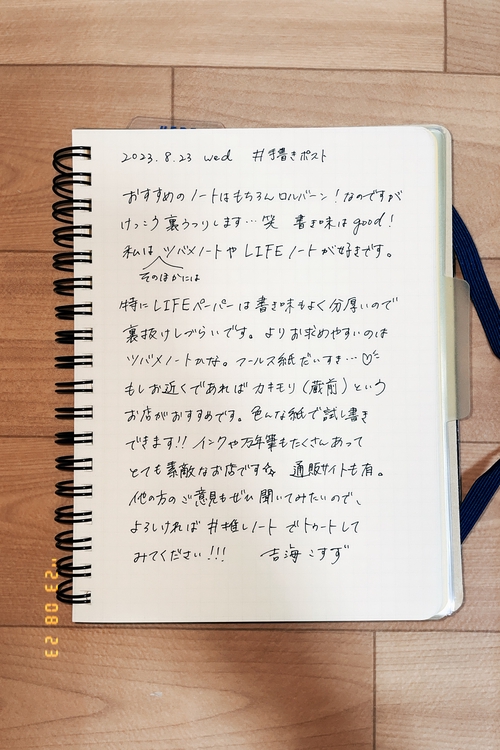 2023.8.23 wed #手書きポスト
おすすめのノートはもちろんロルバーン！なのですが
けっこう裏うつりします…笑 書き味はgood！
私は ツバメノートやLIFEノートが好きです。
そのほかには
特にLIFEペーパーは書き味もよく分厚いので
裏抜けしづらいです。よりお求めやすいのは
ツバメノートかな。フールス紙だいすき…♡
もしお近くであればカキモリ（蔵前）という
お店がおすすめです。色んな紙で試し書き
できます!! インクや万年筆もたくさんあって
とても素敵なお店です☆ 通販サイトも有。
他の方のご意見もぜひ聞いてみたいので、
よろしければ #推しノート でトゥートして
みてください!!! 吉海こすず
'23 08 23